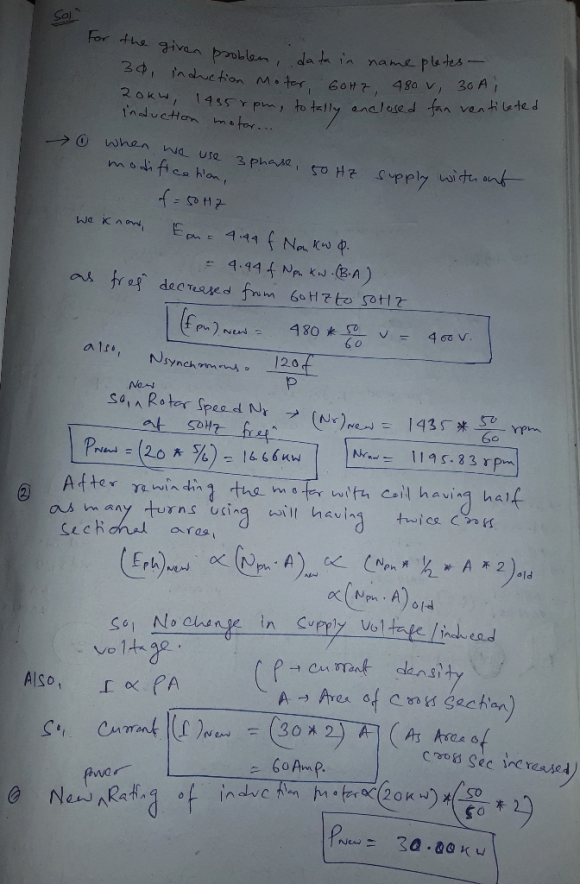 Sol^n
For the given problem, data in name plates —
3Φ, induction Motor, 60HZ, 480 V, 30A,
20KW, 1435 rpm, totally enclosed fan ventilated
induction motor...
→ ① when we use 3 phase, 50 HZ supply without
modification,
f = 50HZ
we know, Eph = 4.44 f Nph Kw Φ.
= 4.44 f Nph Kw.(B.A)
as freq^n decreased from 60HZ to 50HZ
(Eph)new = 480 * 50/60 V = 400 V.
also, Nsynchronous = 120f/P
So, New Rotor Speed Nr → (Nr)new = 1435 * 50/60 rpm
at 50HZ freq^n
Pnew = (20 * 5/6) = 16.66KW Nrnew = 1195.83 rpm
② After rewinding the motor with coil having half
as many turns using will having twice cross
sectional area,
(Eph)new ∝ (Nph.A)new ∝ (Nph * 1/2 * A * 2)old
∝ (Nph.A)old
So, No change in supply voltage/induced
voltage.
Also, I ∝ PA (P → current density
A → Area of cross section)
So, Current (I)new = (30*2) A (As Area of
cross sec increased)
= 60Amp.
New power Rating of induction motor ∝ (20KW) * (50/ * 2)
Pnew = 30.00 KW